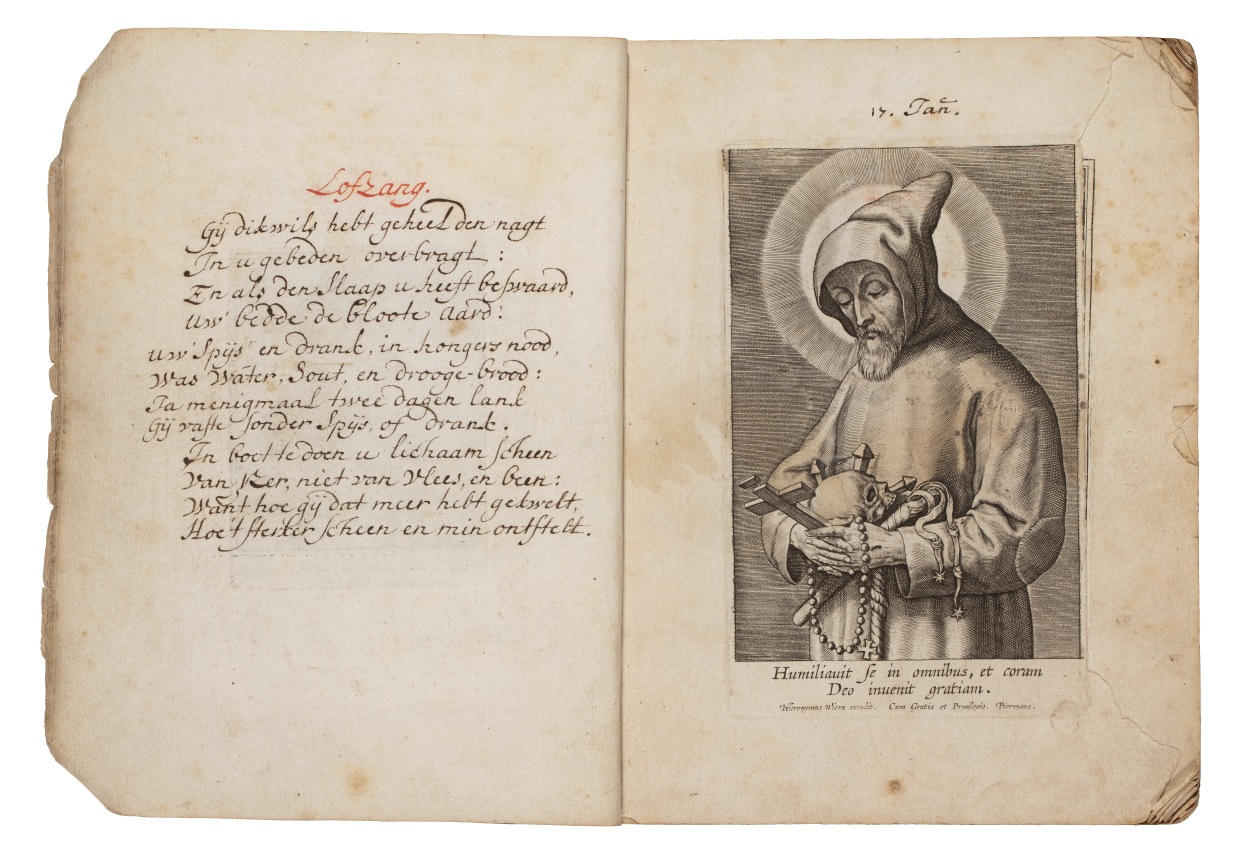 Lofzang.
Gij dikwils hebt geheel den nagt
In u gebeden overbragt :
En als den slaap u heeft beswaard,
uw' bedde de bloote aard:
uw' spijs en drank, in hongers nood,
was water, sout, en drooge-brood :
Ja menigmaal twee dagen lank
Gij vaste sonder spijs, of drank.
In boet te doen u lichaam scheen
van Yzer, niet van vlees, en been :
Want hoe gij dat meer hebt gekwelt,
Hoe 't sterker scheen en min ontstelt.
17. Jan.
Humiliauit se in omnibus, et coram
Deo inuenit gratiam.
Hieronymus Wierx excudit. Cum Gratia et Priuilegio. Piermans.